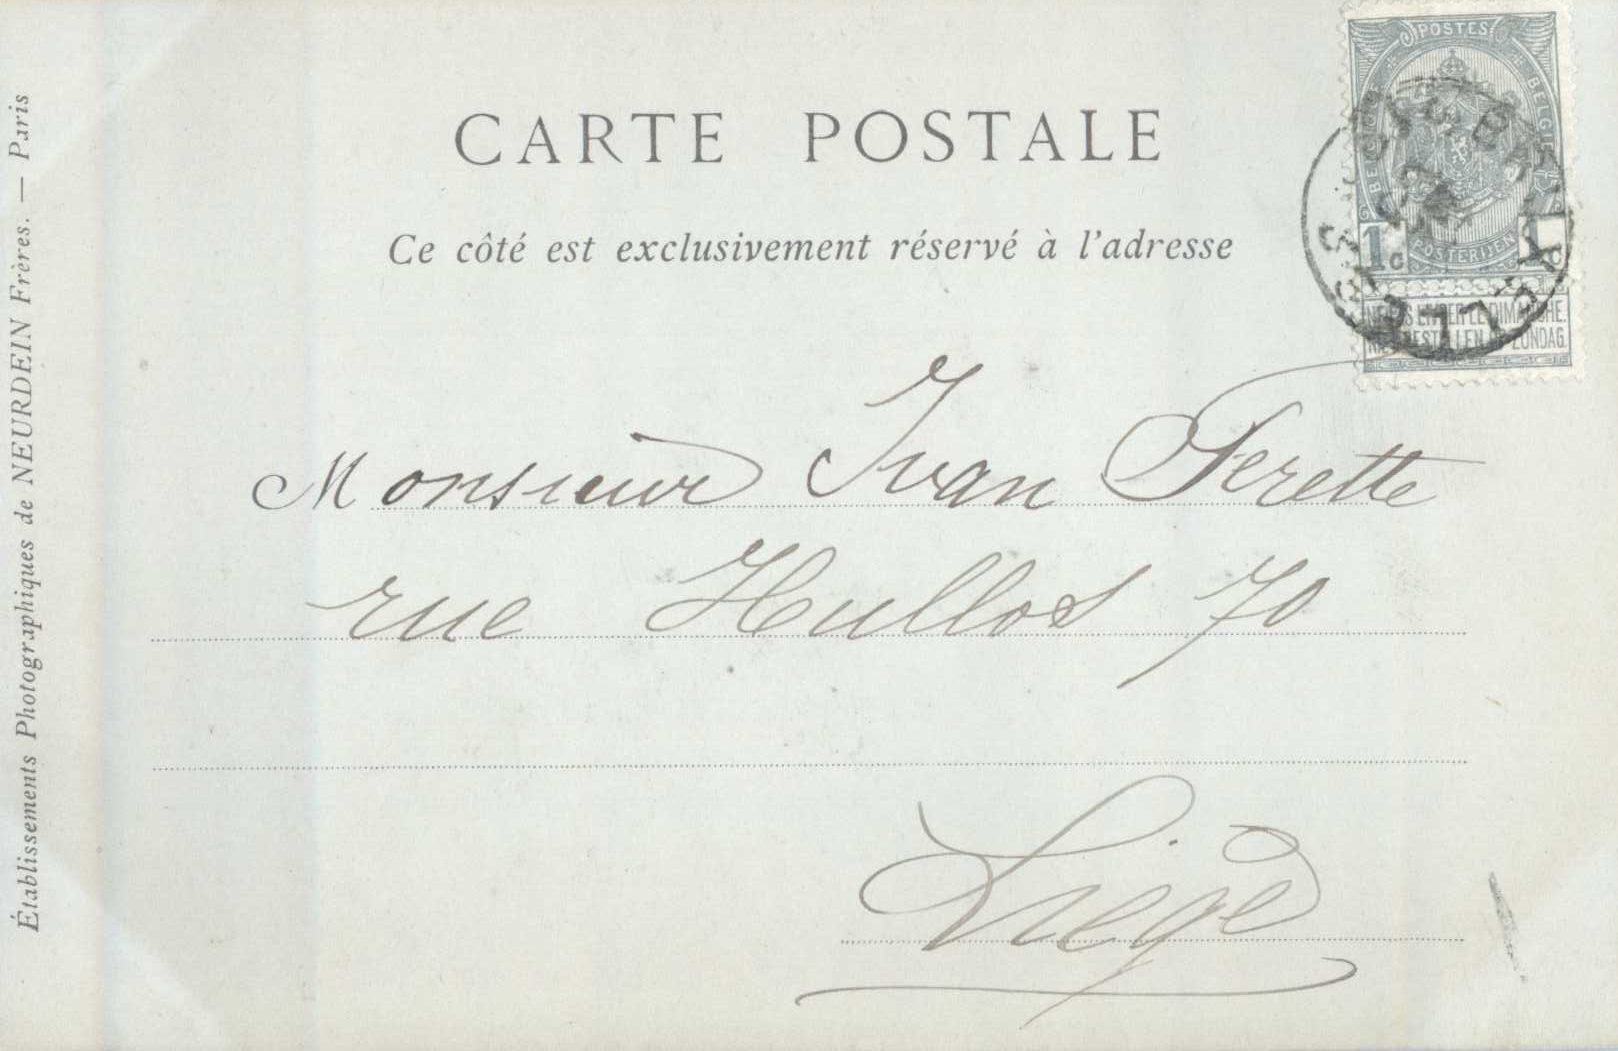 CARTE POSTALE
Ce côté est exclusivement réservé à l'adresse
Établissements Photographiques de NEURDEIN Frères. — Paris
POSTES
BELGIQUE
BELGIE
POSTERIJEN
1c 1c
NE PAS LIVRER LE DIMANCHE.
NIET BESTELLEN OP ZONDAG.
Monsieur Ivan Perette
rue Hullos 70
Liège